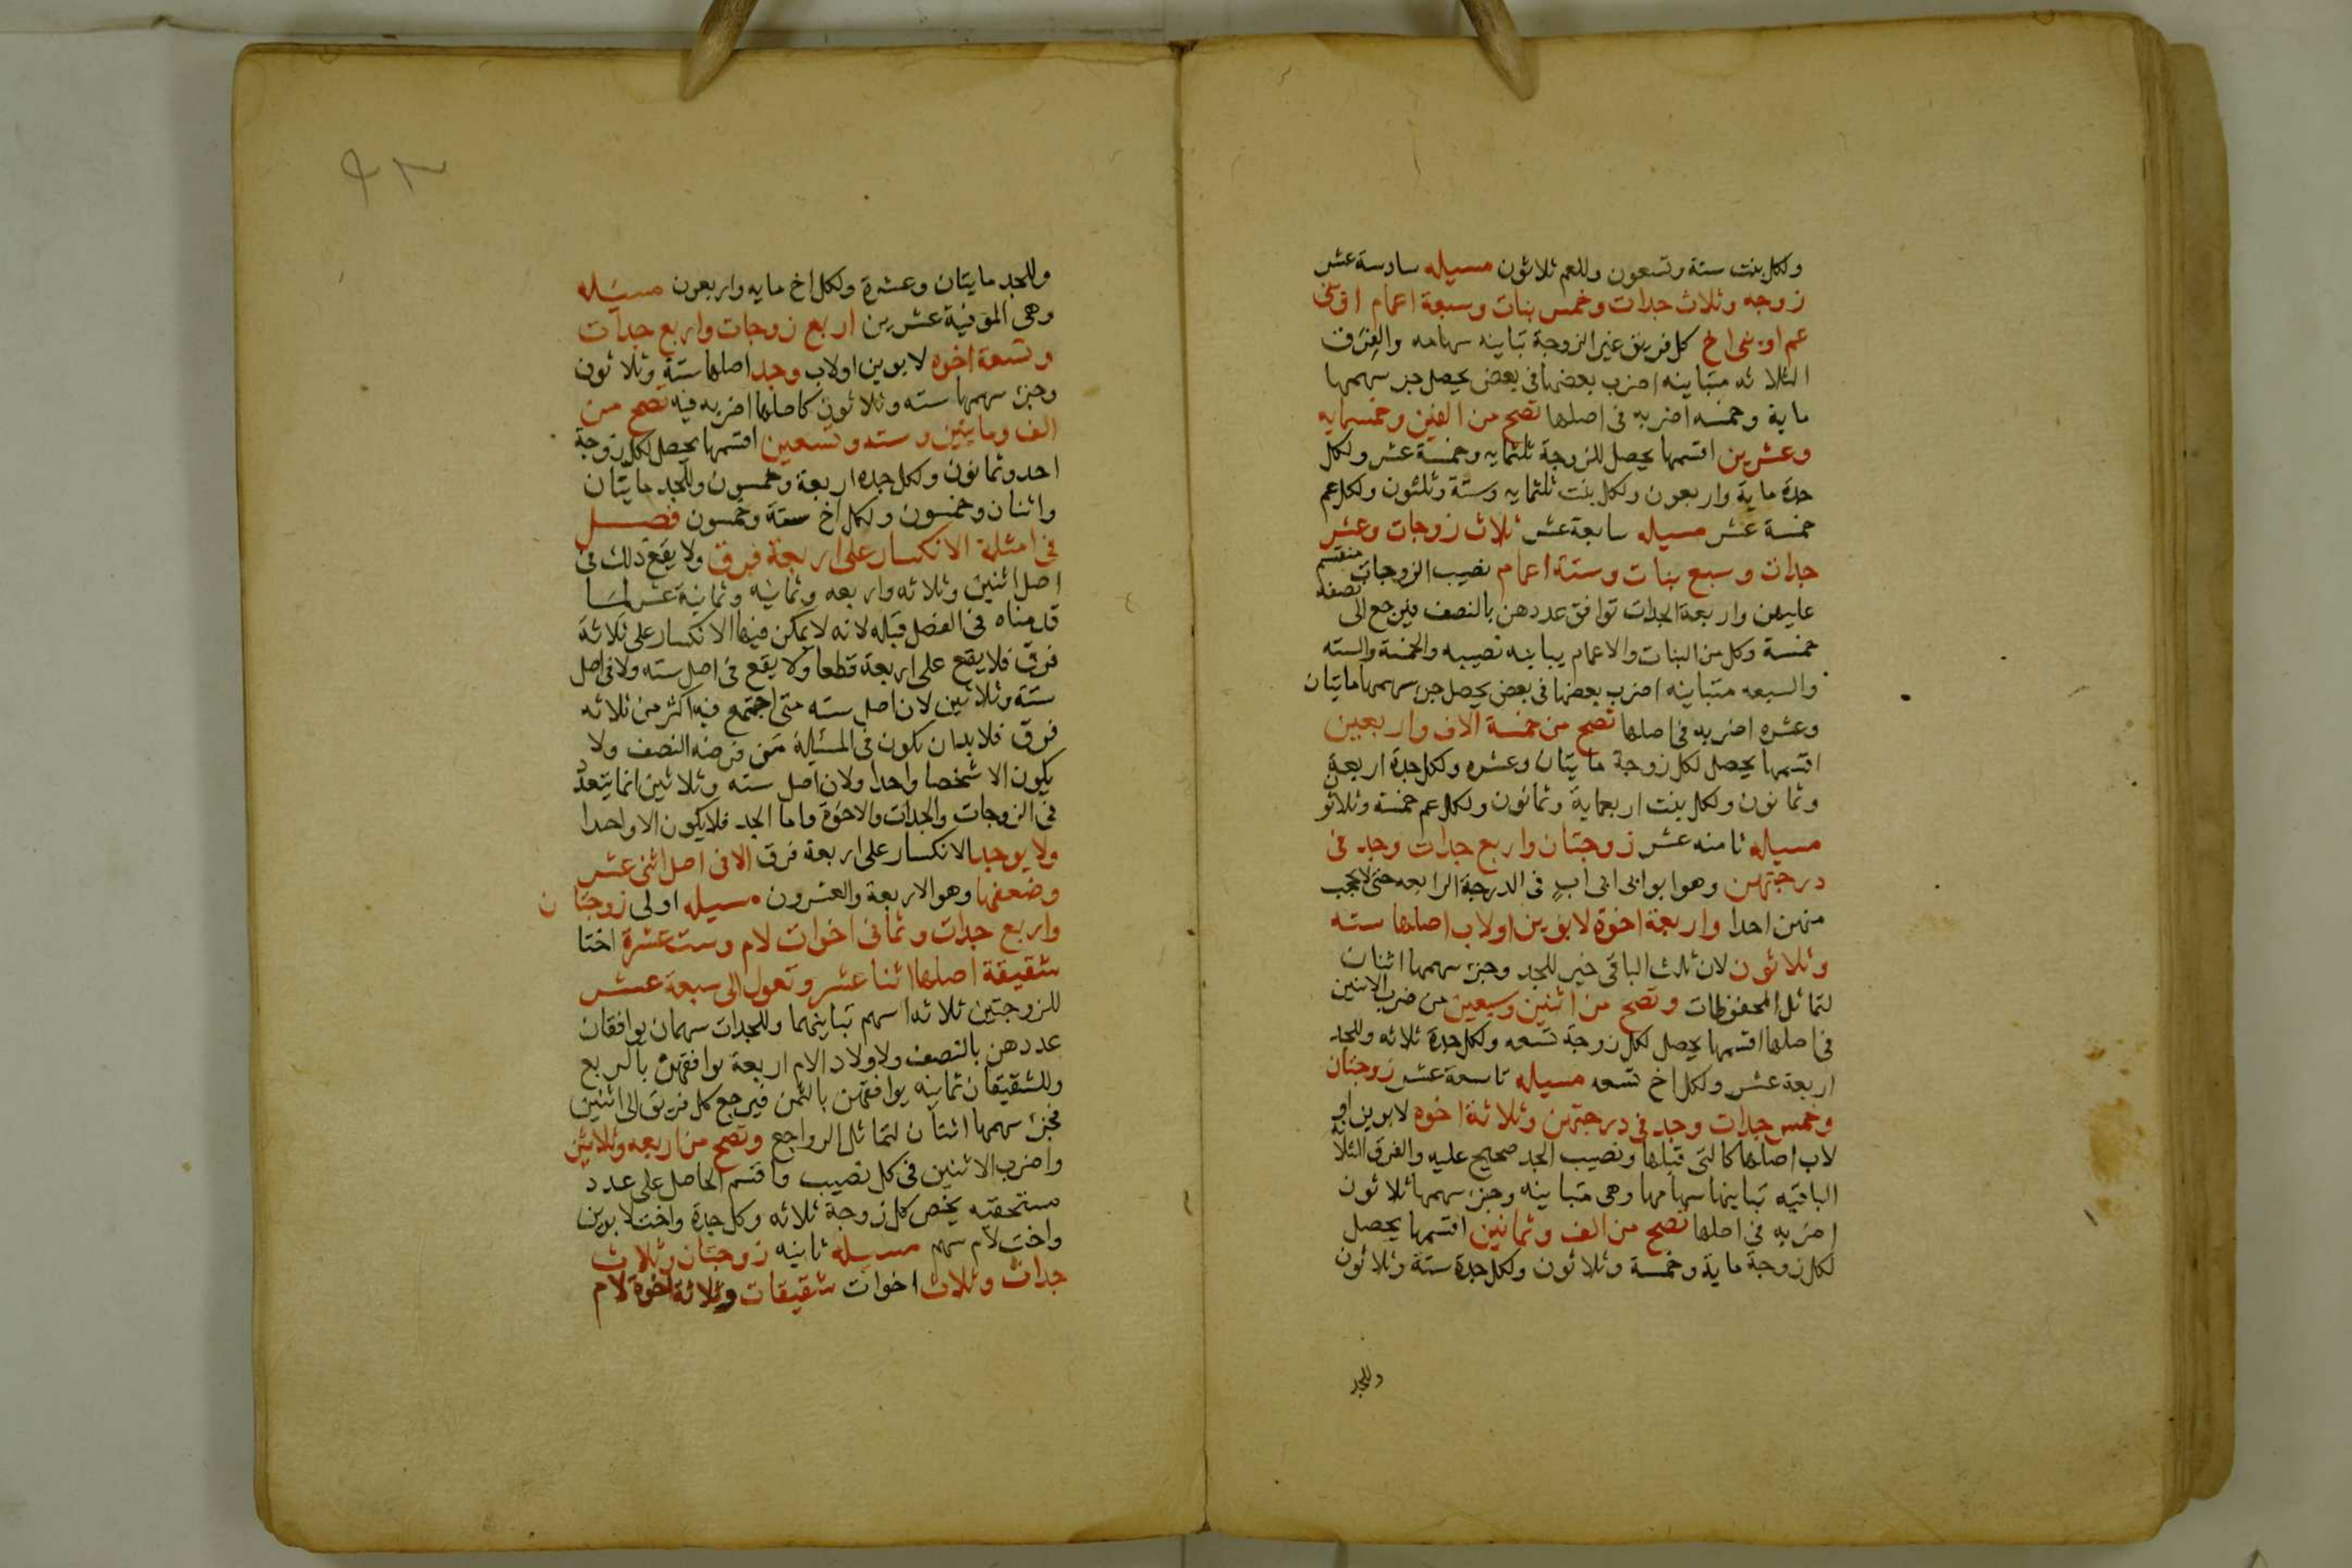 ولكل بنت ستة وتسعون وللعم ثلاثون مسيله سادسة عشر
زوجه وثلاث جدات وخمس بنات وسبعة اعمام او بنى
عم او بنى اخ كل فريق غير الزوجة تباينه سهامه والفرق
الثلاثه متباينه اضرب بعضها فى بعض يحصل جز سهمها
ماية وخمسه اضربه فى اصلها تصح من الفين وخمسمايه
وعشرين اقسمها يحصل للزوجة ثلثمايه وخمسة عشر ولكل
جدة ماية واربعون ولكل بنت ثلثمايه وستة وثلثون ولكل عم
خمسة عشر مسيله سابعة عشر ثلاث زوجات وعشر
جدات وسبع بنات وستة اعمام نصيب الزوجات منقسم
عليهن واربعة الجدات توافق عددهن بالنصف فيرجع الى نصفه
خمسة وكل من البنات والاعمام يباينه نصيبه والخمسة والسته
والسبعه متباينه اضرب بعضها فى بعض يحصل جز سهمها مايتان
وعشره اضربه فى اصلها تصح من خمسة الاف واربعين
اقسمها يحصل لكل زوجة مايتان وعشره ولكل جدة اربعة
وثمانون ولكل بنت اربعماية وثمانون ولكل عم خمسة وثلاثون
مسيله ثامنه عشر زوجتان واربع جدات وجد فى
درجتهن وهو ابو ابى ابى اب فى الدرجة الرابعه حتى لا يحجب
منهن احدا واربعة اخوة لابوين او لاب اصلها سته
وثلاثون لان ثلث الباقى خير للجد وجز سهمها اثنان
لتماثل المحفوظات وتصح من اثنين وسبعين من ضرب الاثنين
فى اصلها اقسمها يحصل لكل زوجة تسعه ولكل جدة ثلاثه وللجد
اربعة عشر ولكل اخ تسعه مسيله تاسعة عشر زوجتان
وخمس جدات وجد فى درجتهن وثلاثة اخوه لابوين او
لاب اصلها كالتى قبلها ونصيب الجد صحيح عليه والفرق الثلاثة
الباقيه تباينها سهامها وهى متباينه وجز سهمها ثلاثون
اضربه فى اصلها تصح من الف وثمانين اقسمها يحصل
لكل زوجة ماية وخمسة وثلاثون ولكل جدة ستة وثلاثون
وللجد
وللجد مايتان وعشرة ولكل اخ مايه واربعون مسيله
وهى الموفية عشرين اربع زوجات واربع جدات
وتسعة اخوه لابوين او لاب وجد اصلها ستة وثلاثون
وجز سهمها سته وثلاثون كاصلها اضربه فيه تصح من
الف ومايتين وسته وتسعين اقسمها يحصل لكل زوجة
احد وثمانون ولكل جده اربعة وخمسون وللجد مايتان
واثنان وخمسون ولكل اخ ستة وخمسون فصل
فى امثلة الانكسار على اربعة فرق ولا يقع ذلك فى
اصل اثنين وثلاثه واربعه وثمانيه وثمانية عشر لما
قدمناه فى الفصل قبله لانه لا يمكن فيها الانكسار على ثلاثة
فرق فلا يقع على اربعة قطعا ولا يقع فى اصل سته ولا فى اصل
ستة وثلاثين لان اصل سته متى اجتمع فيه اكثر من ثلاثه
فرق فلا بد ان يكون فى المسيلة من فرضه النصف ولا
يكون الا شخصا واحدا ولان اصل سته وثلاثين انما يتعدد
فى الزوجات والجدات والاخوة واما الجد فلا يكون الا واحدا
ولا يوجد الانكسار على اربعة فرق الا فى اصل اثنى عشر
وضعفها وهو الاربعة والعشرون مسيله اولى زوجتان
واربع جدات وثمانى اخوات لام وست عشرة اختا
شقيقة اصلها اثنا عشر وتعول الى سبعة عشر
للزوجتين ثلاثه اسهم تباينهما وللجدات سهمان يوافقان
عددهن بالنصف ولاولاد الام اربعة توافقهن بالربع
وللشقيقات ثمانيه يوافقهن بالثمن فيرجع كل فريق الى اثنين
فجز سهمها اثنان لتماثل الرواجع وتصح من اربعه وثلاثين
واضرب الاثنين فى كل نصيب واقسم الحاصل على عدد
مستحقيه يخص كل زوجة ثلاثه وكل جدة واخت لابوين
واخت لام سهم مسيله ثانيه زوجتان وثلاث
جدات وثلاث اخوات شقيقات وثلاثة اخوة لام